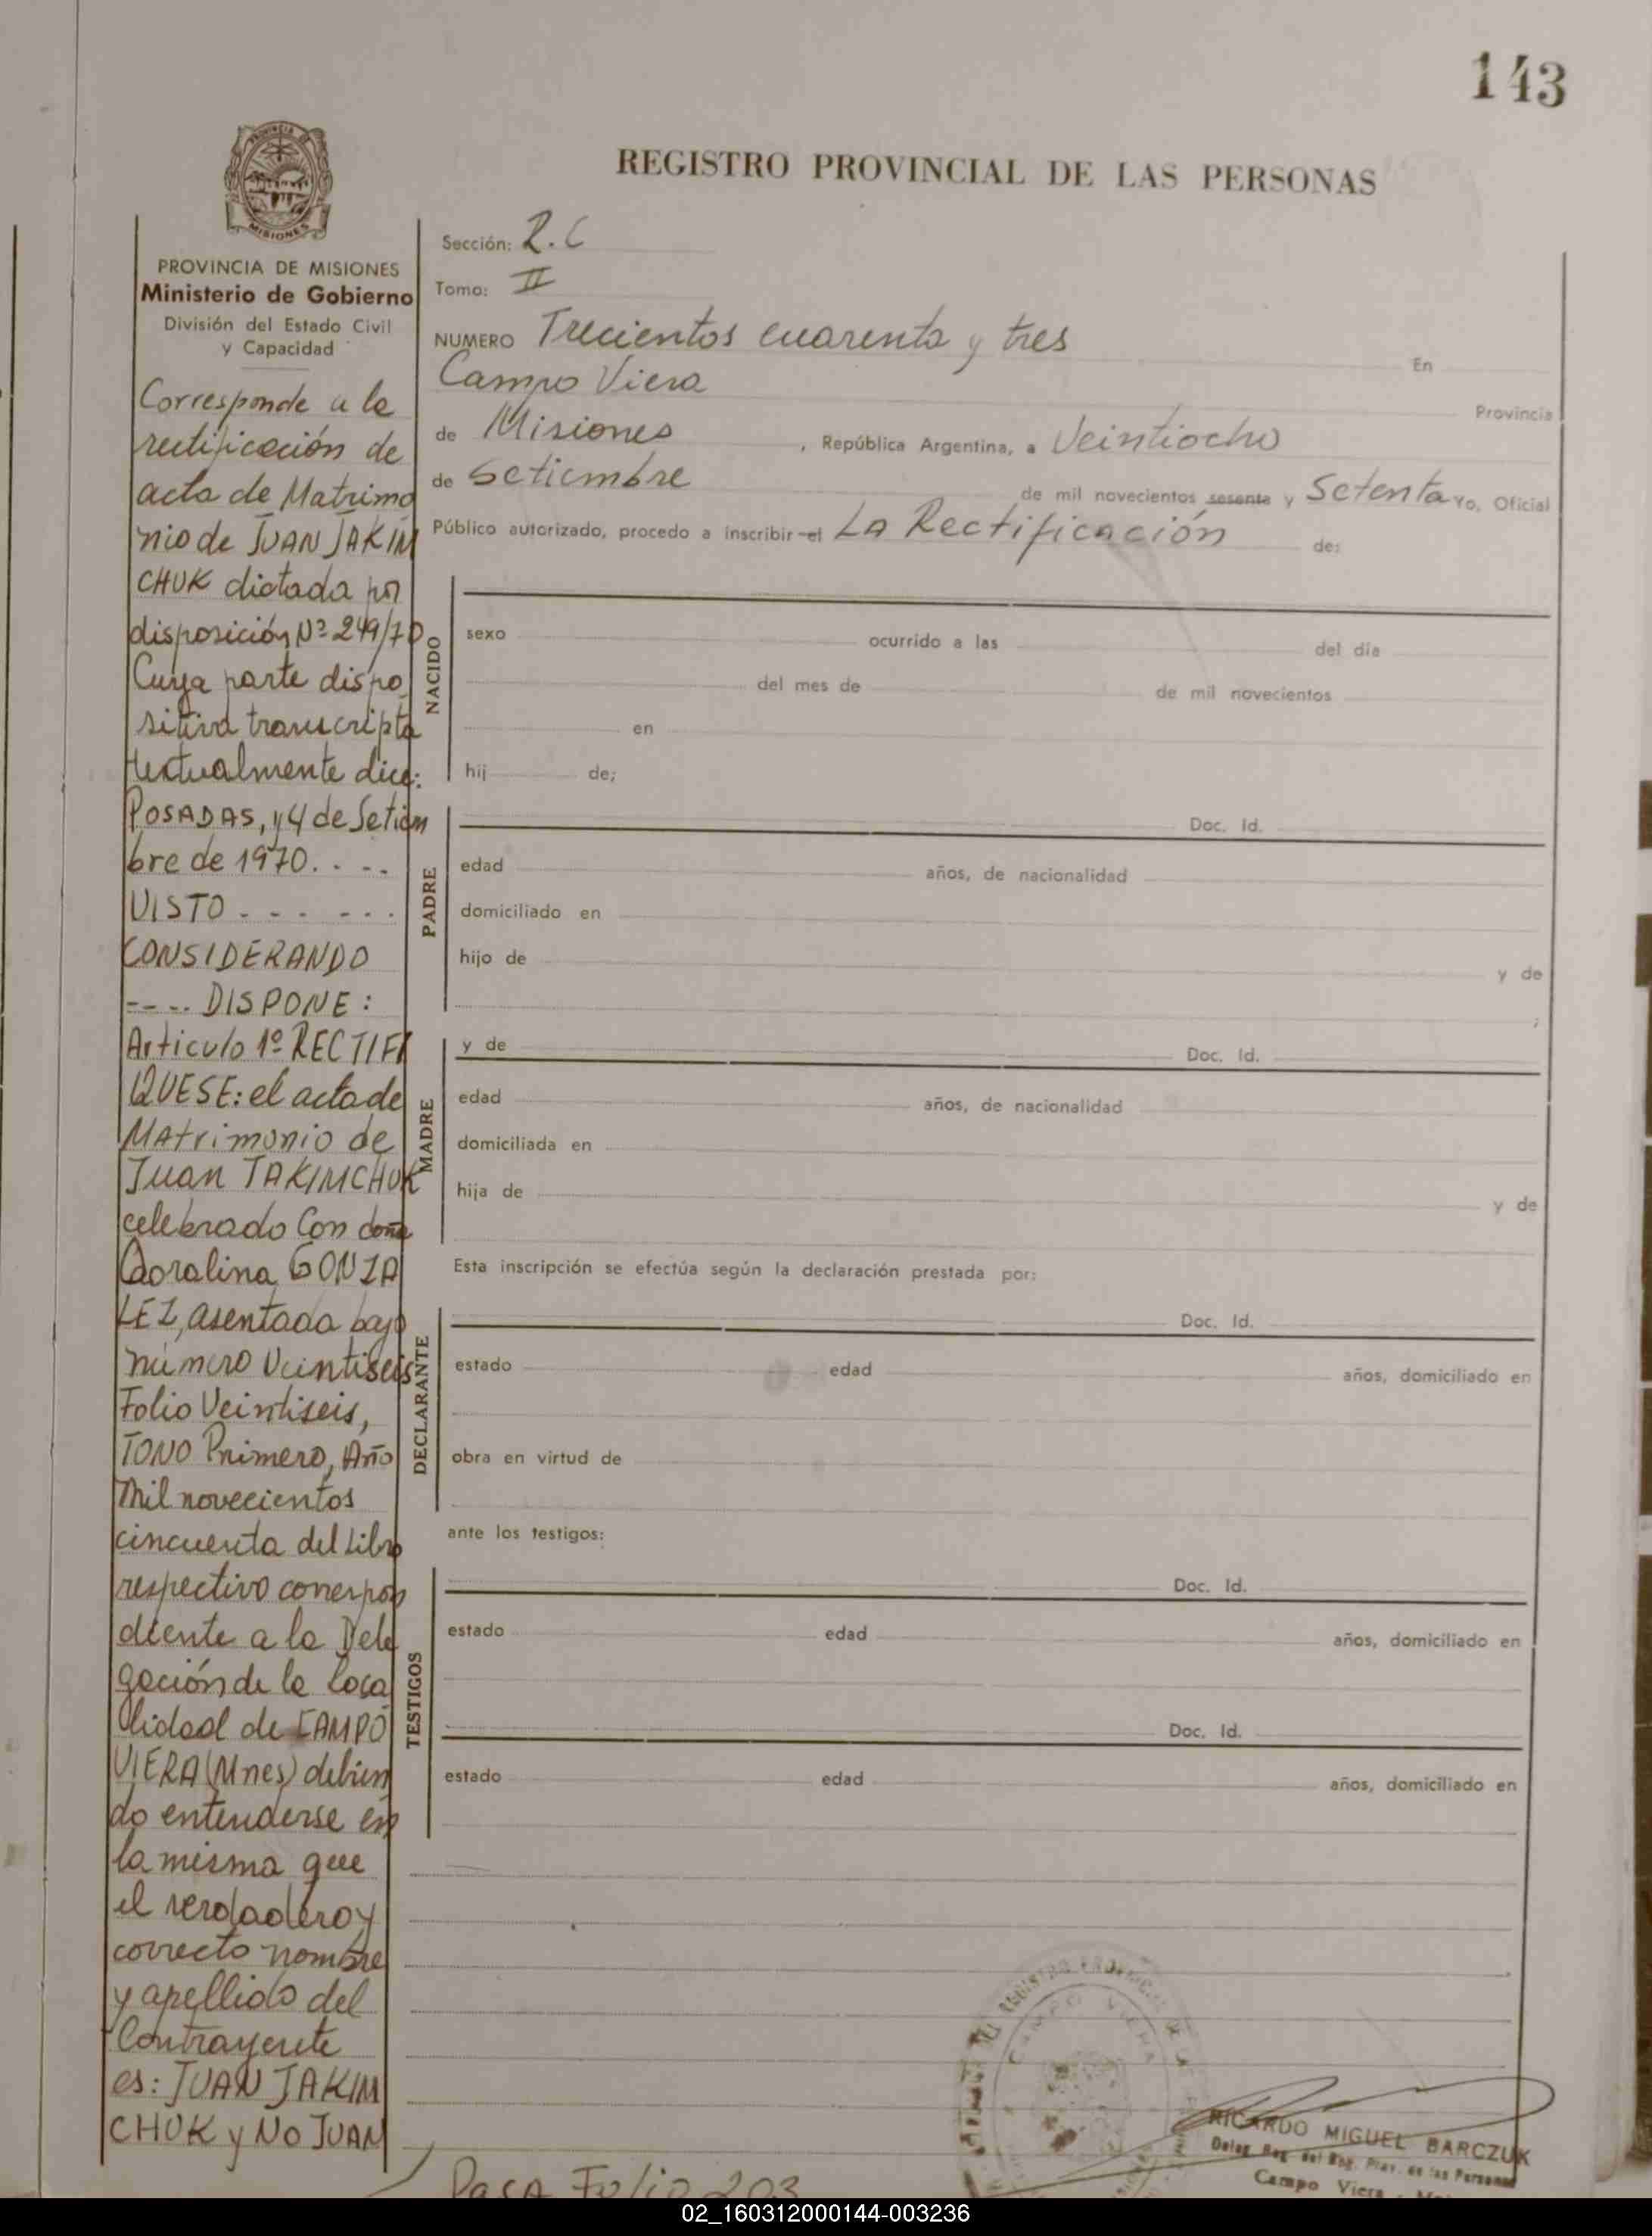 143
PROVINCIA DE
MISIONES
REGISTRO PROVINCIAL DE LAS PERSONAS
PROVINCIA DE MISIONES
Ministerio de Gobierno
División del Estado Civil
y Capacidad
Corresponde a la
rectificación de
acta de Matrimo
nio de JUAN JAKIM
CHUK dictada por
disposición Nº 249/70
Cuya parte dispo
sitiva transcripta
textualmente dice:
POSADAS, 14 de Setiem
bre de 1970. . - - .
VISTO - - - - - - .
CONSIDERANDO
- - - . . DISPONE :
Articulo 1º RECTIFI
QUESE: el acta de
MAtrimonio de
Juan JAKIMCHUK
celebrado Con doña
Doralina GONZA
LEZ, asentada bajo
número Veintiseis
Folio Veintiseis,
TONO Primero, Año
Mil novecientos
cincuenta del Libro
respectivo correspon
diente a la Dele
gación de la Loca
lidad de CAMPO
VIERA (Mnes) debien
do entenderse en
la misma que
el verdadero y
correcto nombre
y apellido del
Contrayente
es: JUAN JAKIM
CHUK y NO JUAN
Sección: R.C
Tomo: II
NUMERO Trecientos cuarenta y tres En
Campo Viera Provincia
de Misiones , República Argentina, a Veintiocho
de Setiembre de mil novecientos sesenta y Setenta Yo, Oficial
Público autorizado, procedo a inscribir el LA Rectificación de:
NACIDO
sexo ocurrido a las del día
del mes de de mil novecientos
en
hij de;
PADRE
Doc. Id.
edad años, de nacionalidad
domiciliado en
hijo de y de
;
MADRE
y de Doc. Id.
edad años, de nacionalidad
domiciliada en
hija de y de
Esta inscripción se efectúa según la declaración prestada por:
DECLARANTE
Doc. Id.
estado edad años, domiciliado en
obra en virtud de
ante los testigos:
TESTIGOS
Doc. Id.
estado edad años, domiciliado en
Doc. Id.
estado edad años, domiciliado en
REGISTRO PROVINCIAL DE LA
CAMPO VIERA
RICARDO MIGUEL BARCZUK
Deleg. Reg. del Reg. Prov. de las Personas
Campo Viera
PASA Folio 203
02_160312000144-003236